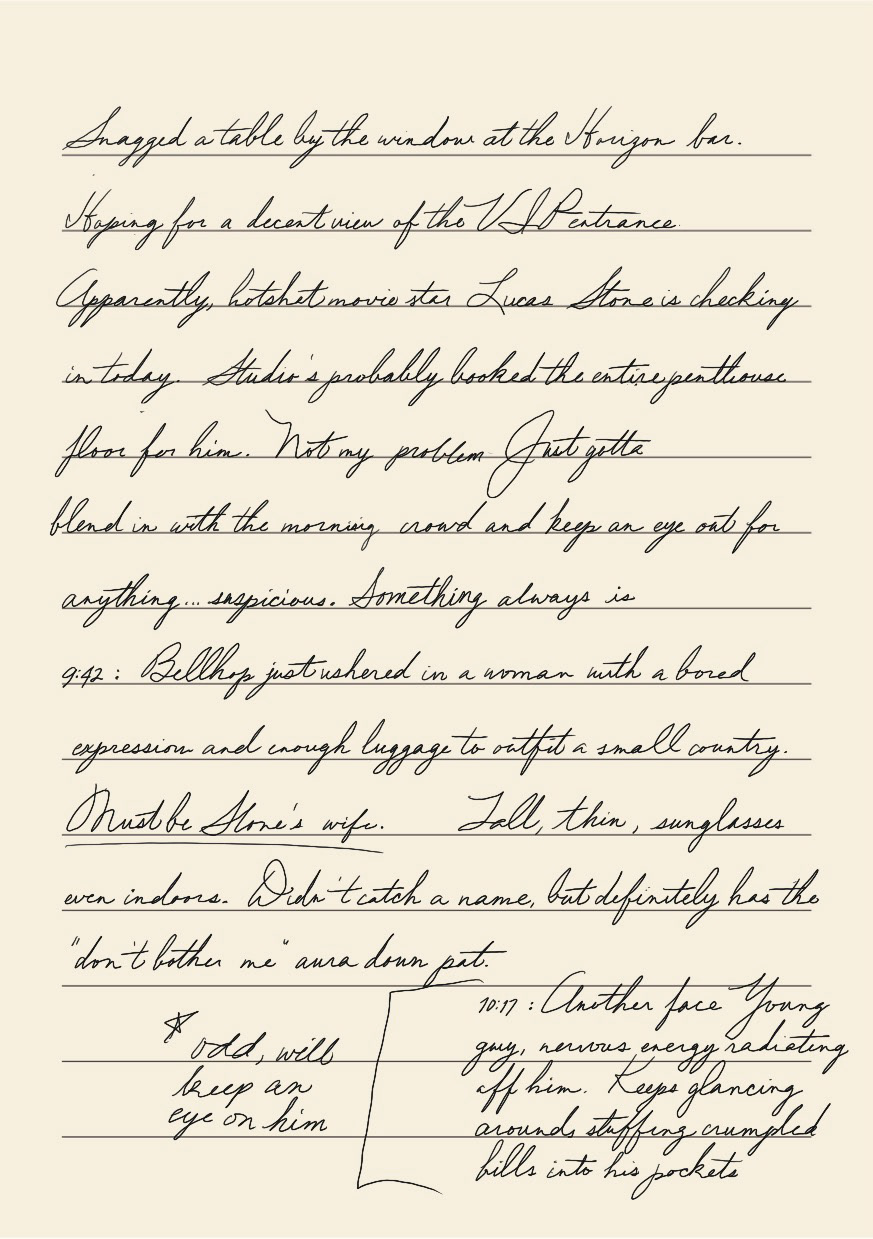 Snagged a table by the window at the Horizon bar.
Hoping for a decent view of the VIP entrance.
Apparently, hotshot movie star Lucas Stone is checking
in today. Studio's probably booked the entire penthouse
floor for him. Not my problem. Just gotta
blend in with the morning crowd and keep an eye out for
anything... suspicious. Something always is
9:42 : Bellhop just ushered in a woman with a bored
expression and enough luggage to outfit a small country.
Must be Stone's wife. Tall, thin, sunglasses
even indoors. Didn't catch a name, but definitely has the
"don't bother me" aura down pat.
10:17 : Another face Young
guy, nervous energy radiating
off him. Keeps glancing
around, stuffing crumpled
bills into his pockets
* odd, will
keep an
eye on him